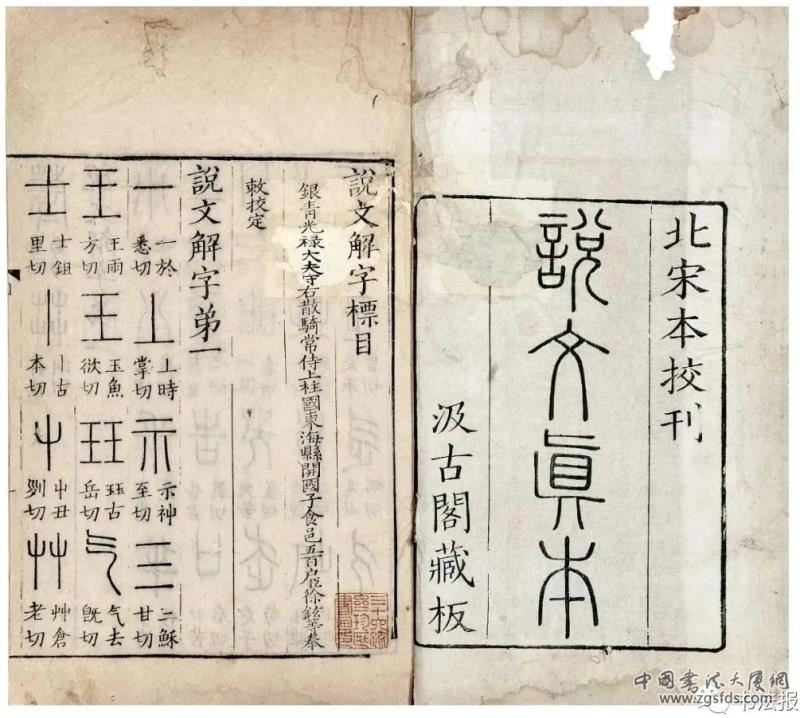 北宋本挍刊
說文眞本
汲古閣藏板
說文解字標目
銀青光禄大夫守右散騎常侍上柱國東海縣開國子食邑五百户臣徐鉉等奉
敕挍定
說文解字弟一
一 一於悉切 丄 上時掌切 示 示神至切 三 三穌甘切
王 王雨方切 玉 玉魚欲切 玨 玨古岳切 气 气去旣切
士 士鉏里切 丨 丨古本切 屮 屮丑列切 艸 艸倉老切
中國書法大厦網
www.zgsfds.com
书法报